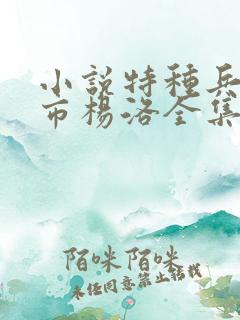 小說特種兵
市楊洛全集
陌咪陌咪
未经同意禁止转载